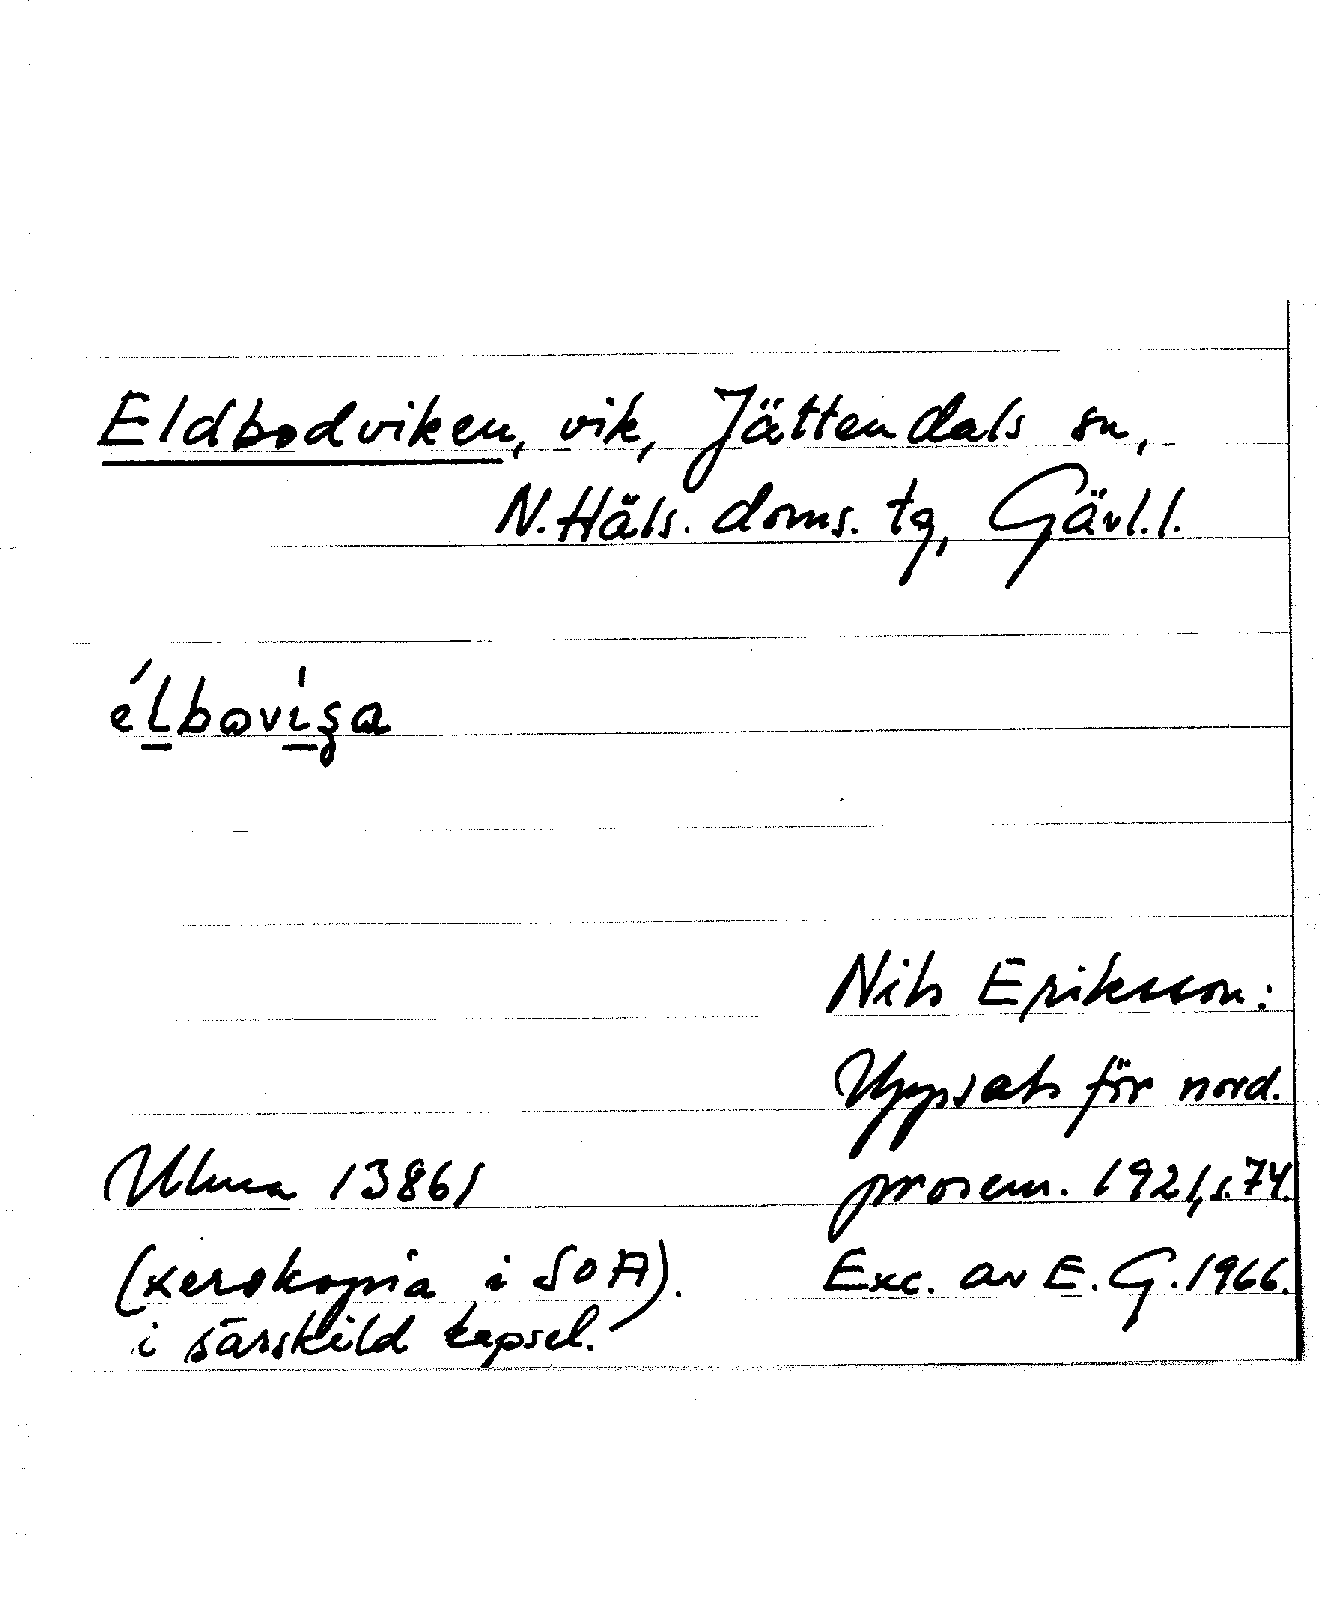 Eldbodviken, vik, Jättendals sn,
N. Häls. doms. tg, Gävl. l.
élbovi̍ʂa
Nils Eriksson:
Uppsats för nord.
prosem. 1921, s. 74.
Exc. av E. G. 1966.
Ulma 13861
(xerokopia i SOA).
i särskild kapsel.